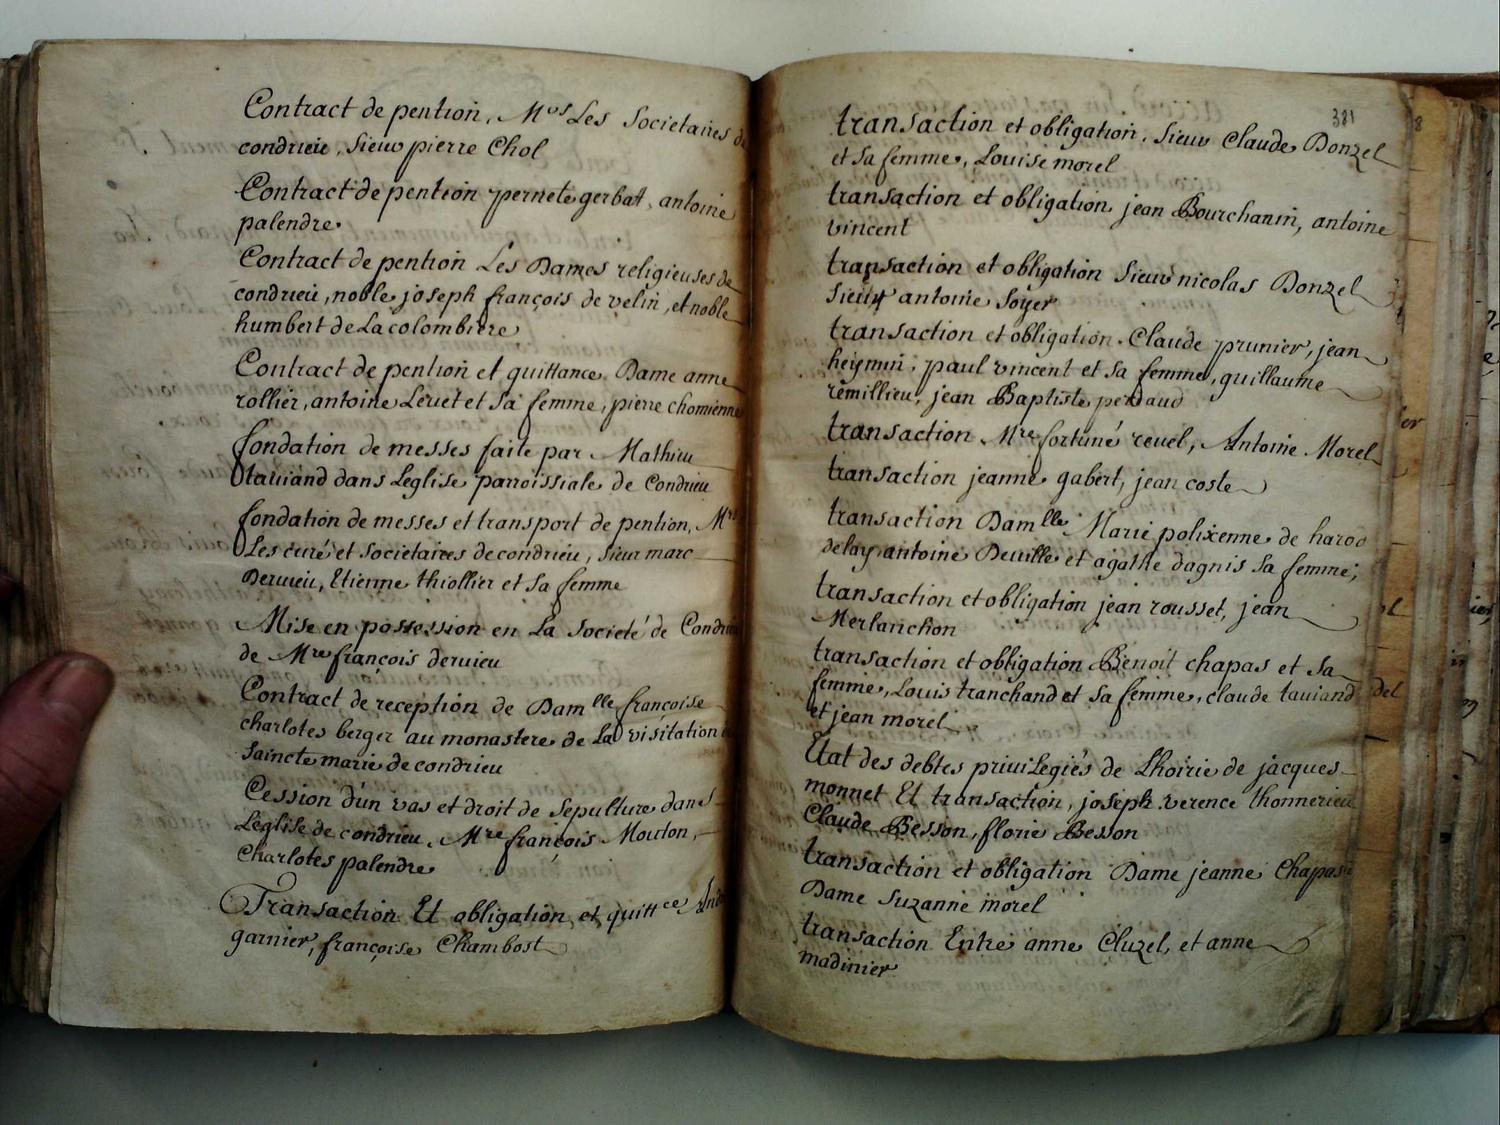 Contract de pention, Mrs Les Societaires de
condrieu, Sieur pierre Chol
Contract de pention pernete gerbat, antoine
palendre.
Contract de pention Les Dames religieuses de
condrieu, noble joseph françois de velin, et noble
humbert de La colombiere
Contract de pention et quittance Dame anne
rollier, antoine Levet et Sa femme, pierre chomienne
fondation de messes faite par Mathieu
taviand dans Leglise parroissiale de Condrieu
fondation de messes et transport de pention, Mrs
Les curé et Societaires de condrieu, Sieur marc
Dervieu, Etienne thiollier et Sa femme
Mise en possession en La Societé de Condrieu
de Mre françois dervieu
Contract de reception de Damlle françoise
charlotes berger au monastere de La visitation
Saincte marie de condrieu
Cession d'un vas et droit de Sepulture dans
Leglise de condrieu, Mre françois Mouton,
Charlotes palendre
Transaction Et obligation et quittce
garnier, françoise Chambost
381
transaction et obligation, Sieur Claude Donzel
et Sa femme, Louise morel
transaction et obligation jean Bourchanin, antoine
vincent
transaction et obligation Sieur nicolas Donzel
Sieur antoine Soyer
transaction et obligation. Claude prunier, jean
paul vincent et Sa femme, guillaume
remillieu, jean Baptiste perdaud
transaction Mre fortuné revel, Antoine Morel
transaction jeanne gabert, jean coste
transaction Damlle Marie polixenne de harod
delay antoine Deville et agathe dagnis Sa femme;
transaction et obligation jean rousset, jean
Merlanchon
transaction et obligation Benoit chapas et Sa
femme, Louis tranchand et Sa femme, claude taviand
et jean morel
Etat des debtes privilegiés de Lhoirie de jacques
monnet Et transaction, joseph verence thonnerieu
Claude Besson, florie Besson
transaction et obligation Dame jeanne Chapas
Dame Suzanne morel
transaction Entre anne Cluzel, et anne
madinier